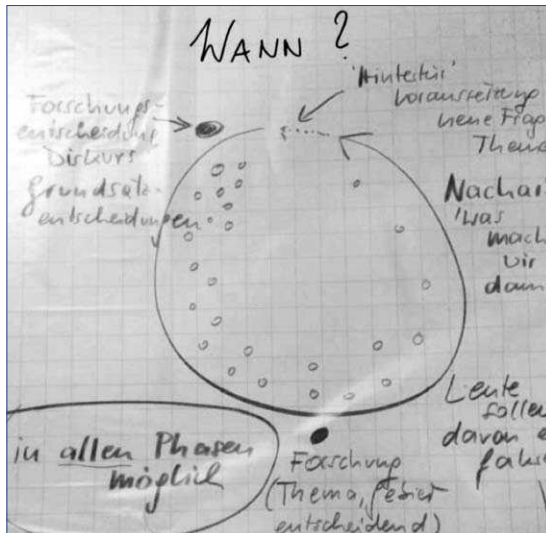 WANN ?
Forschungs-
entscheidung
Diskurs
Grundsatz-
entscheidungen
'Hintertür'
Voraussetzung
neue Frag
Thema
Nachar
'was
mach
wir
dam
Leute
sollen
davon e
fahr
in allen Phasen
möglich
Forschung
(Thema, Gebiet
entscheidend)